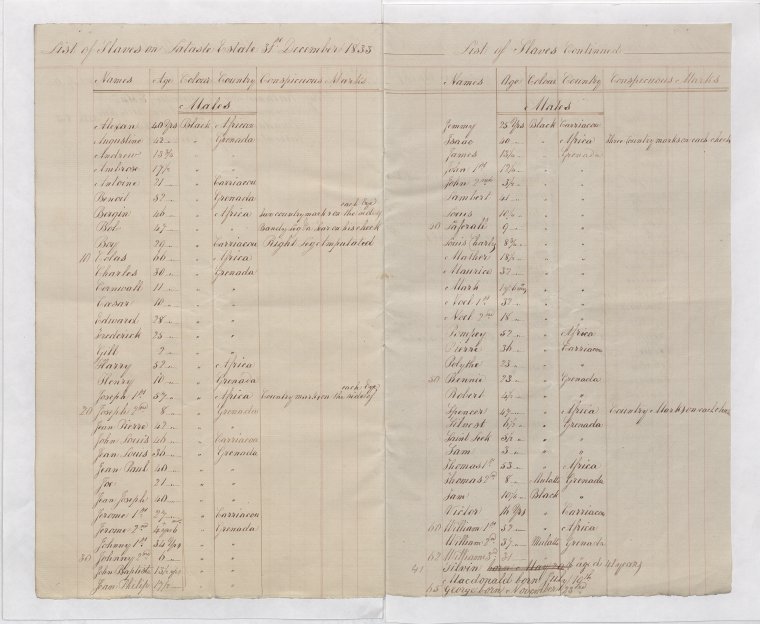 List of Slaves on Lataste Estate 31st December 1833
Names Age Colour Country Conspicuous Marks
Males
Alexan 40 Yrs Black African
Augustine 42 " " Grenada
Andrew 13 1/2 " " "
Ambrose 17 1/2 " " "
Antoine 21 " " Carriacou
Benoit 52 " " Grenada
Bergin 46 " " Africa two country marks on the side of each Eye
Bob 47 " " " Bandy leg & scar on his cheek
Boy 29 " " Carriacou Right leg Amputated
10 Colas 66 " " Africa
Charles 30 " " Grenada
Cornwall 11 " " "
Caesar 10 " " "
Edward 28 " " "
Frederick 25 " " "
Gill 2 " " "
Harry 52 " " Africa
Henry 10 " " Grenada
Joseph 1st 57 " " Africa Country marks on the side of each Eye
20 Joseph 2nd 8 " " Grenada
Jean Pierre 42 " " "
John Louis 46 " " Carriacou
Jean Louis 36 " " Grenada
Jean Paul 40 " " "
Joe 21 " " "
Jean Joseph 40 " " "
Jerome 1st 27 " " Carriacou
Jerome 2nd " Grenada
Johnny 1st 34 Yrs " "
30 Johnny 2nd 6 " " "
John Baptiste 13 1/2 yrs " "
Jean Philip 17 1/2 " "
List of Slaves Continued
Names Age Colour Country Conspicuous Marks
Males
Jemmy 25 Yrs Black Carriacou
Isaac 40 " " Africa Three Country marks on each cheek
James 13 1/2 " " Grenada
John 1st 12 1/2 " " "
John 2nd 3 1/2 " " "
Lambert 41 " " "
Louis 10 1/2 " " "
40 9 " " "
Louis Charles 8 3/4 " " "
Mather 18 1/2 " " "
Maurice 32 " " "
Mark " "
Noel 1st 32 " " "
Noel 2nd 18 " " "
Pompey 52 " " Africa
Pierre 36 " " Carriacou
Polythe 23 " " "
50 Rennie 23 " " Grenada
Robert 4 1/2 " " "
Spencer 47 " " Africa Country Marks on each cheek
6 1/2 " " Grenada
Saint Luck 3 1/2 " " "
Sam 3 " " "
Thomas 1st 53 " " Africa
Thomas 2nd 8 " Mulatto Grenada
Sam 10 1/2 " Black "
Victor 16 Yrs " Carriacou
60 William 1st 52 " " Africa
William 2d 37 " Mulatto Grenada
62 William 3d 31 " "
41 Silvin aged 41 years
Macdonald born July 19th
63 George born November 23rd